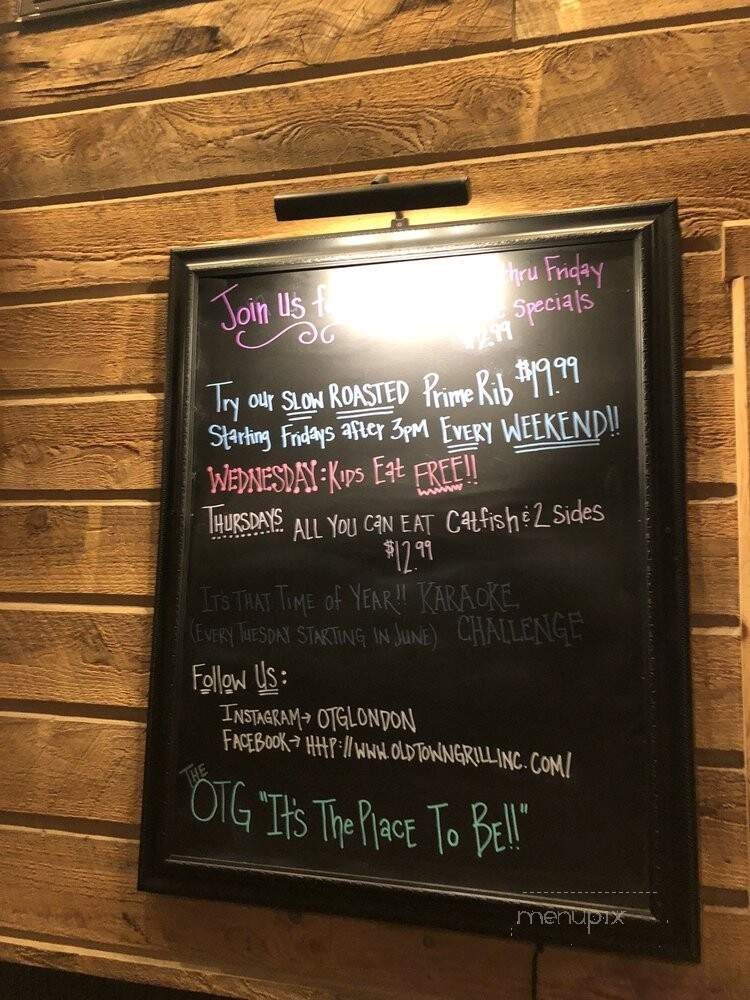 Join Us
thru Friday
Specials
Try our SLOW ROASTED Prime Rib $19.99
Starting Fridays after 3pm EVERY WEEKEND!!
WEDNESDAY: Kids Eat FREE!!
THURSDAYS ALL YOU CAN EAT Catfish & 2 Sides
$12.99
IT'S THAT TIME of YEAR!! KARAOKE
(EVERY TUESDAY STARTING IN JUNE) CHALLENGE
Follow Us:
INSTAGRAM→ OTGLONDON
FACEBOOK→ HTTP://WWW.OLDTOWNGRILLINC.COM/
THE
OTG "It's The Place To Be!!"
menupix